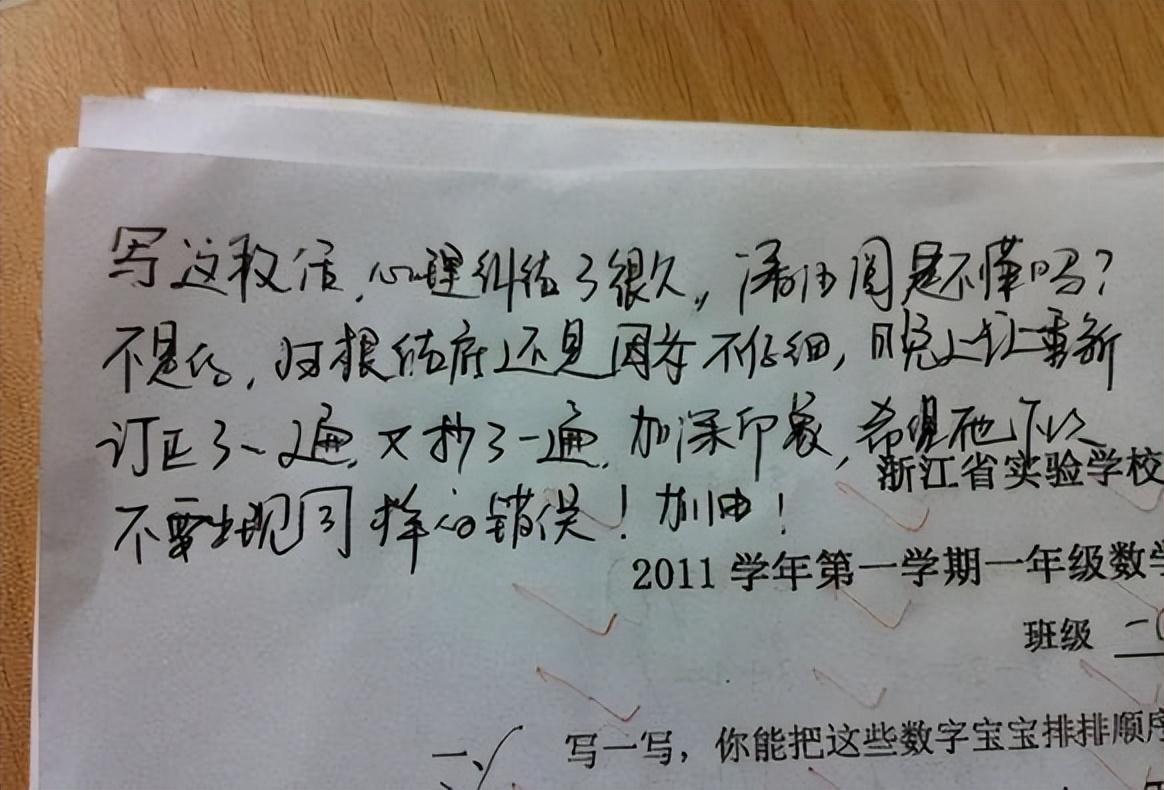 写这段话,心理纠结了很久,,潘油闯是不懂吗?
不是的,归根结底还是因为不仔细,晚上让重新
订正了一遍,又抄了一遍,加深印象,希望他下次
不要出现同样的错误!加油!
浙江省实验学校
2011 学年第一学期一年级数学
班级 一(
一、 写一写,你能把这些数字宝宝排排顺序